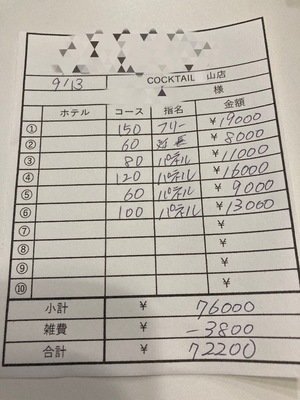 9/13
COCKTAIL 山店
様
ホテル コース 指名 金額
① 150 フリー ¥19000
② 60 延長 ¥8000
③ 80 パネル ¥11000
④ 120 パネル ¥16000
⑤ 60 パネル ¥9000
⑥ 100 パネル ¥13000
⑦ ¥
⑧ ¥
⑨ ¥
⑩ ¥
小計 ¥ 76000
雑費 ¥ -3800
合計 ¥ 72200